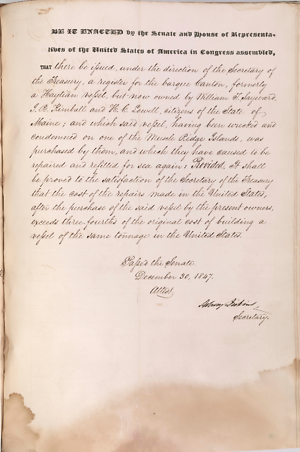 BE IT ENACTED by the Senate and House of Representa-
tives of the United States of America in Congress assembled,
THAT there be issued, under the direction of the Secretary of
the Treasury, a register for the barque Canton, formerly
a Haytien vessel, but now owned by William F. Hayward,
J. R. Kimball and H. C. Lowell, citizens of the State of
Maine; and which said vessel, having been wrecked and
condemned on one of the Ridge Islands, was
purchased by them, and which they have caused to be
repaired and refitted for sea again: Provided, It shall
be proved to the satisfaction of the Secretary of the Treasury
that the cost of the repairs made in the United States,
after the purchase of the said vessel by the present owners,
exceeds three-fourths of the original cost of building a
vessel of the same tonnage in the United States.
Passed the Senate
December 30, 1847.
Attest,
Asbury Dickins,
Secretary